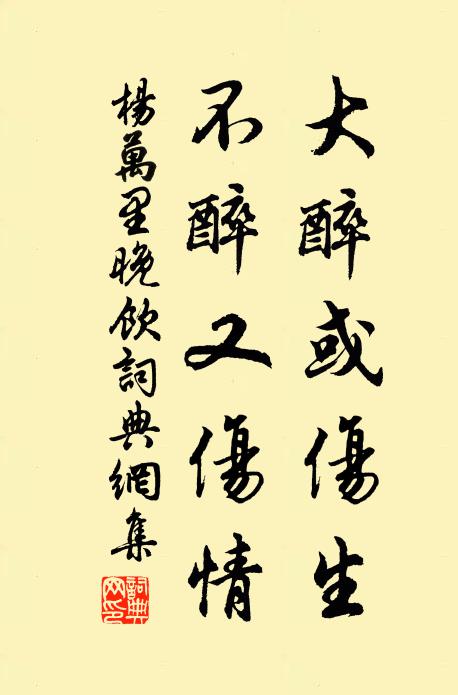 大醉或傷生
不醉又傷情
楊萬里晚飲詞典網集
詞典網印